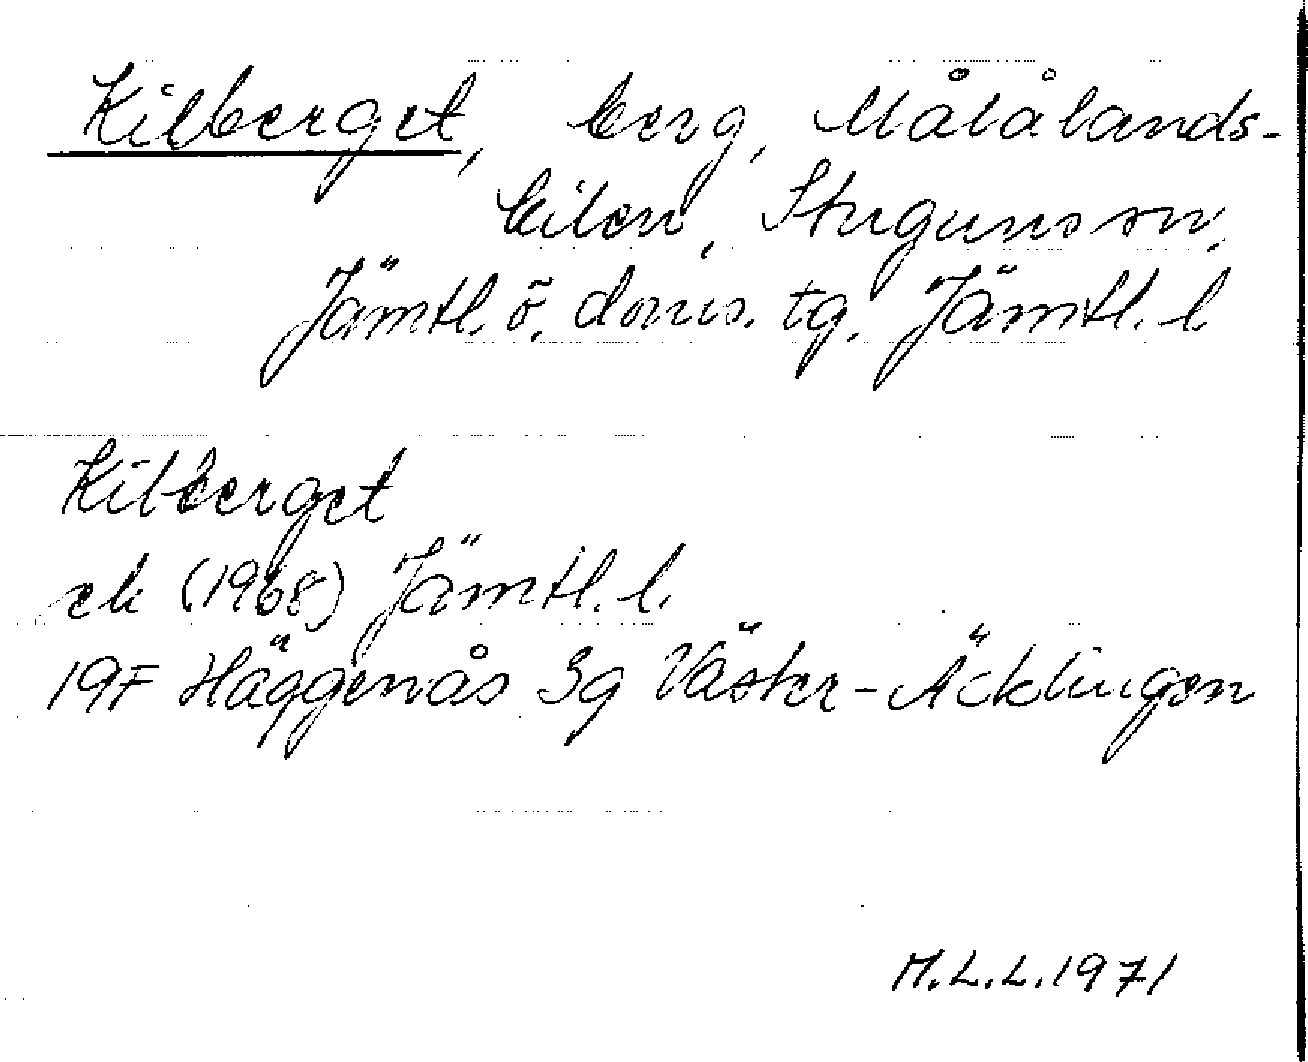 Kilberget, berg, Målåbands-
bilen, Stuguns sn,
Jämtl. ö. doms. tg. Jämtl. l
Kilberget
ek (1968) Jämtl. l.
19F Häggenås 3g Väster-Äcklingen
M.L.L.1971